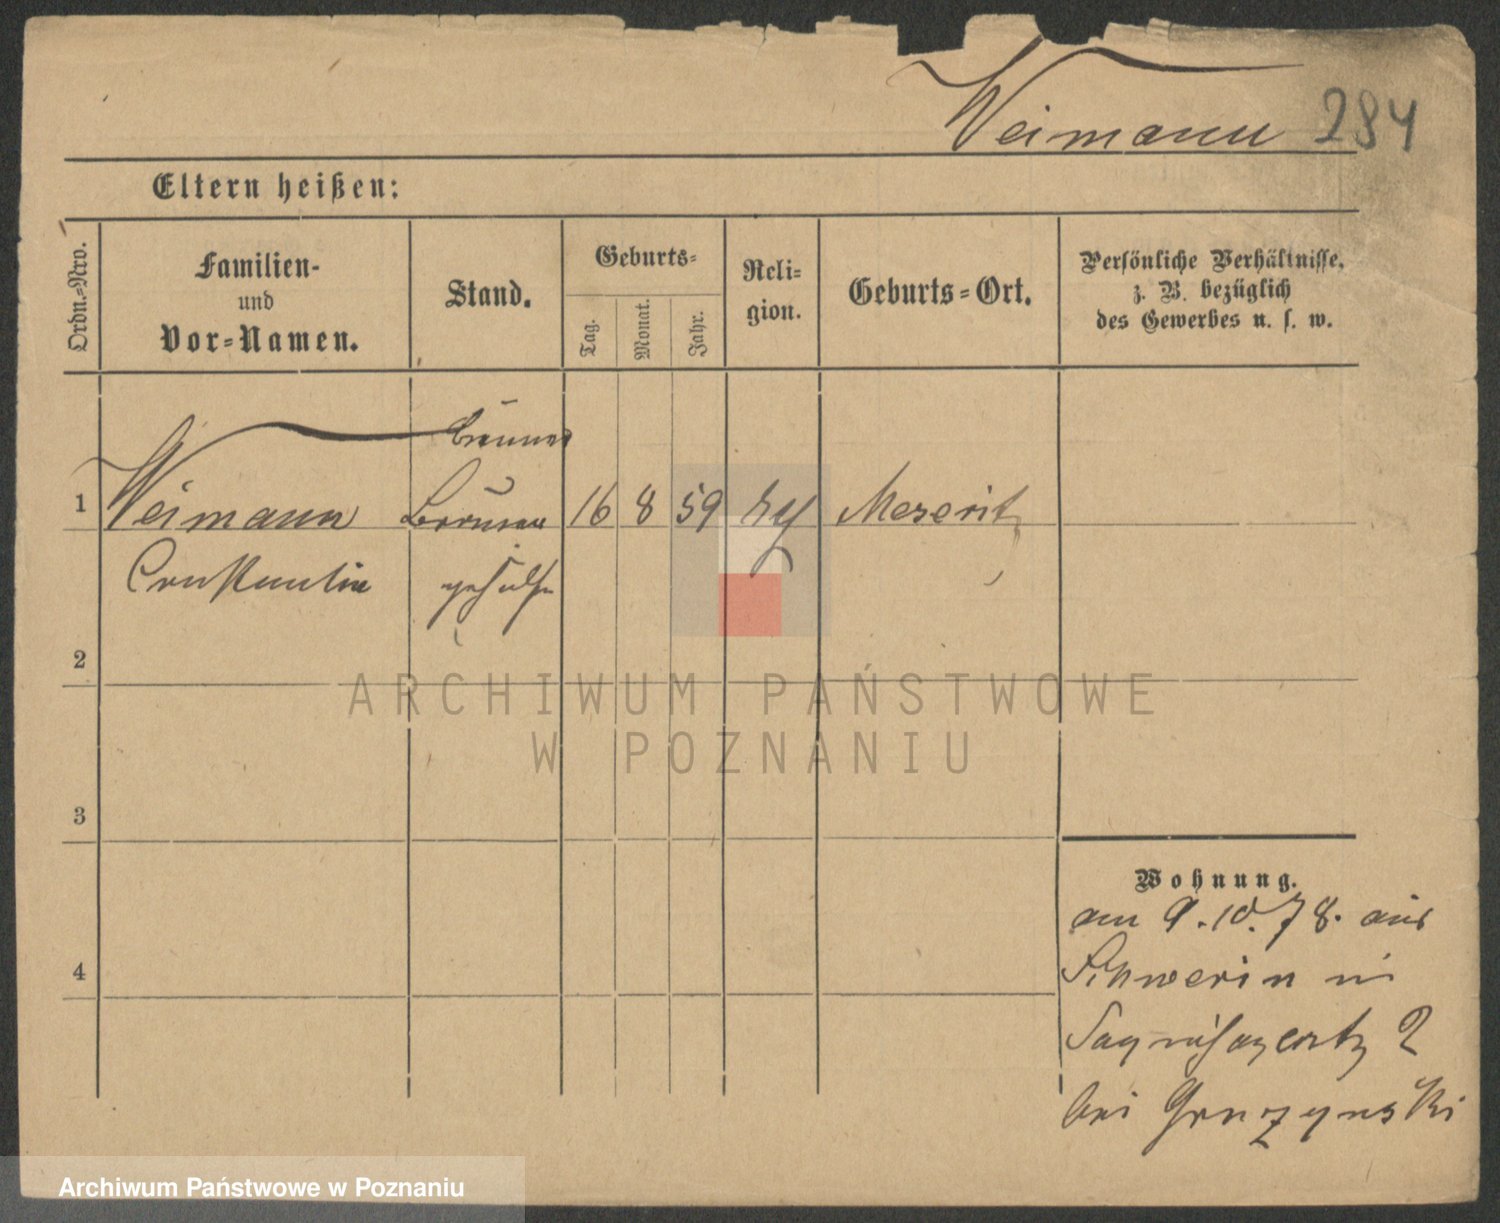 Weimann 284
Eltern heißen:
Ordn.-Nro.
Familien-
und
Vor-Namen.
Stand.
Geburts-
Tag.
Monat.
Jahr.
Reli-
gion.
Geburts-Ort.
Persönliche Verhältnisse,
z. B. bezüglich
des Gewerbes u. s. w.
1 Weimann 16 8 59 Meseritz
Constantin
2
ARCHIWUM PAŃSTWOWE
W POZNANIU
3
4
Wohnung.
am 9.10.78. aus
Schwerin in
2
bei Gruszynski
Archiwum Państwowe w Poznaniu